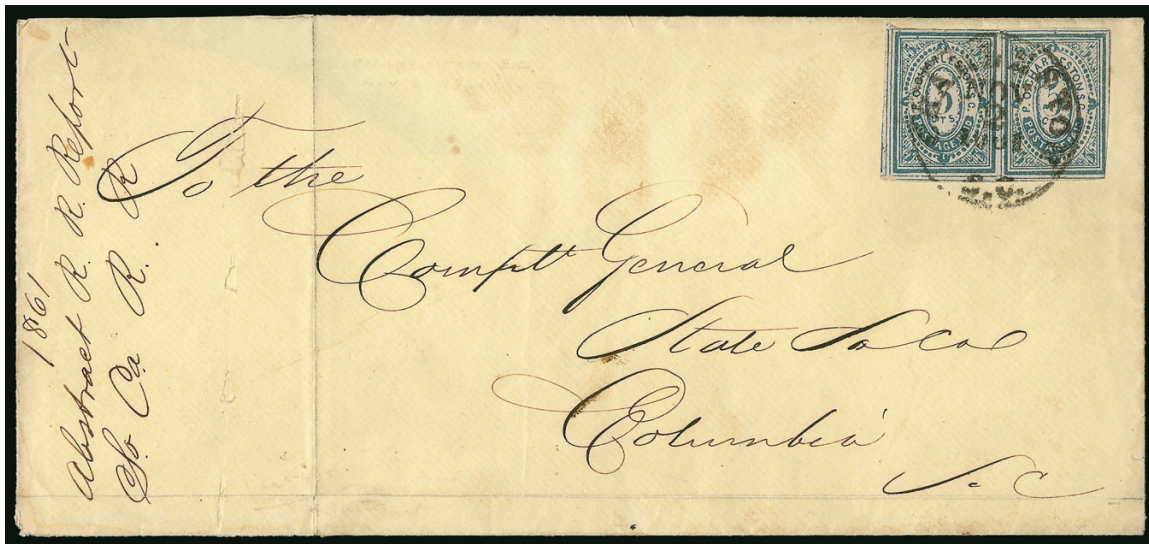 1861
Abstract R. R. Report
So Ca R. R
To the
Compt General
State So Ca
Columbia
S. C
P.O. CHARLESTON S.C.
5
CTS.
POSTAGE PAID
P.O. CHARLESTON S.C.
POSTAGE PAID
NOV